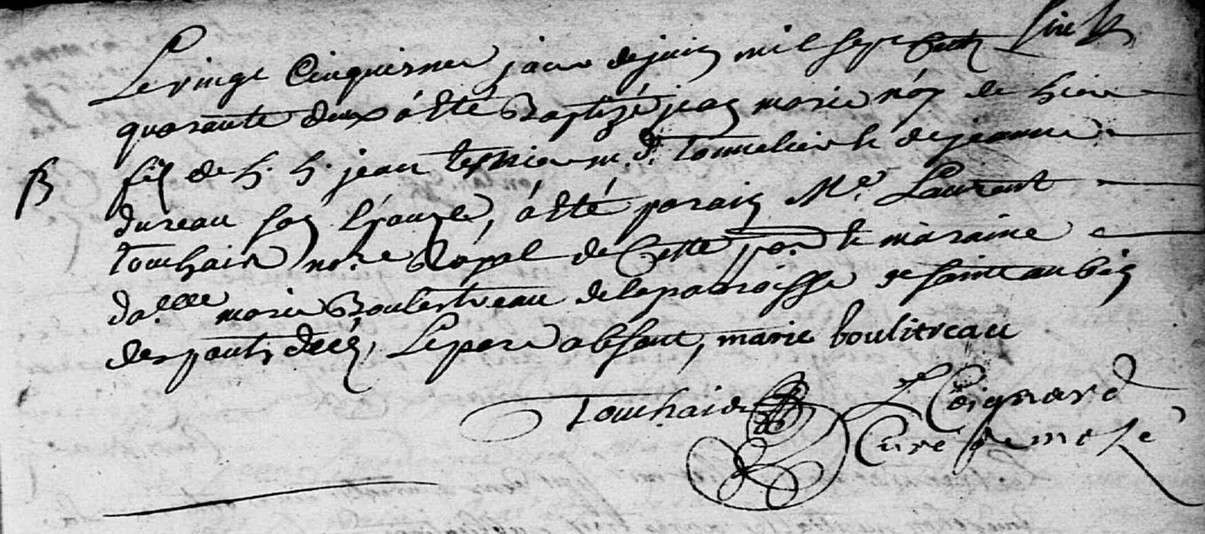 Le vingt Cinquiesme jour de juin mil sept Cents
quarante deux á Eté Baptizé jean marie né de hier
B fils de h. h. jean m.d. Tonnelier & de jeanne
dureau son Epouze, á Eté parain M.e Laurent
touchais no.re Royal de Cette & maraine
da.elle marie Boulestreau de la paroisse de saint aubin
des ponts de cé, Le pere absent, marie boulitreau
Touchais L Coignard
Curé de mozé